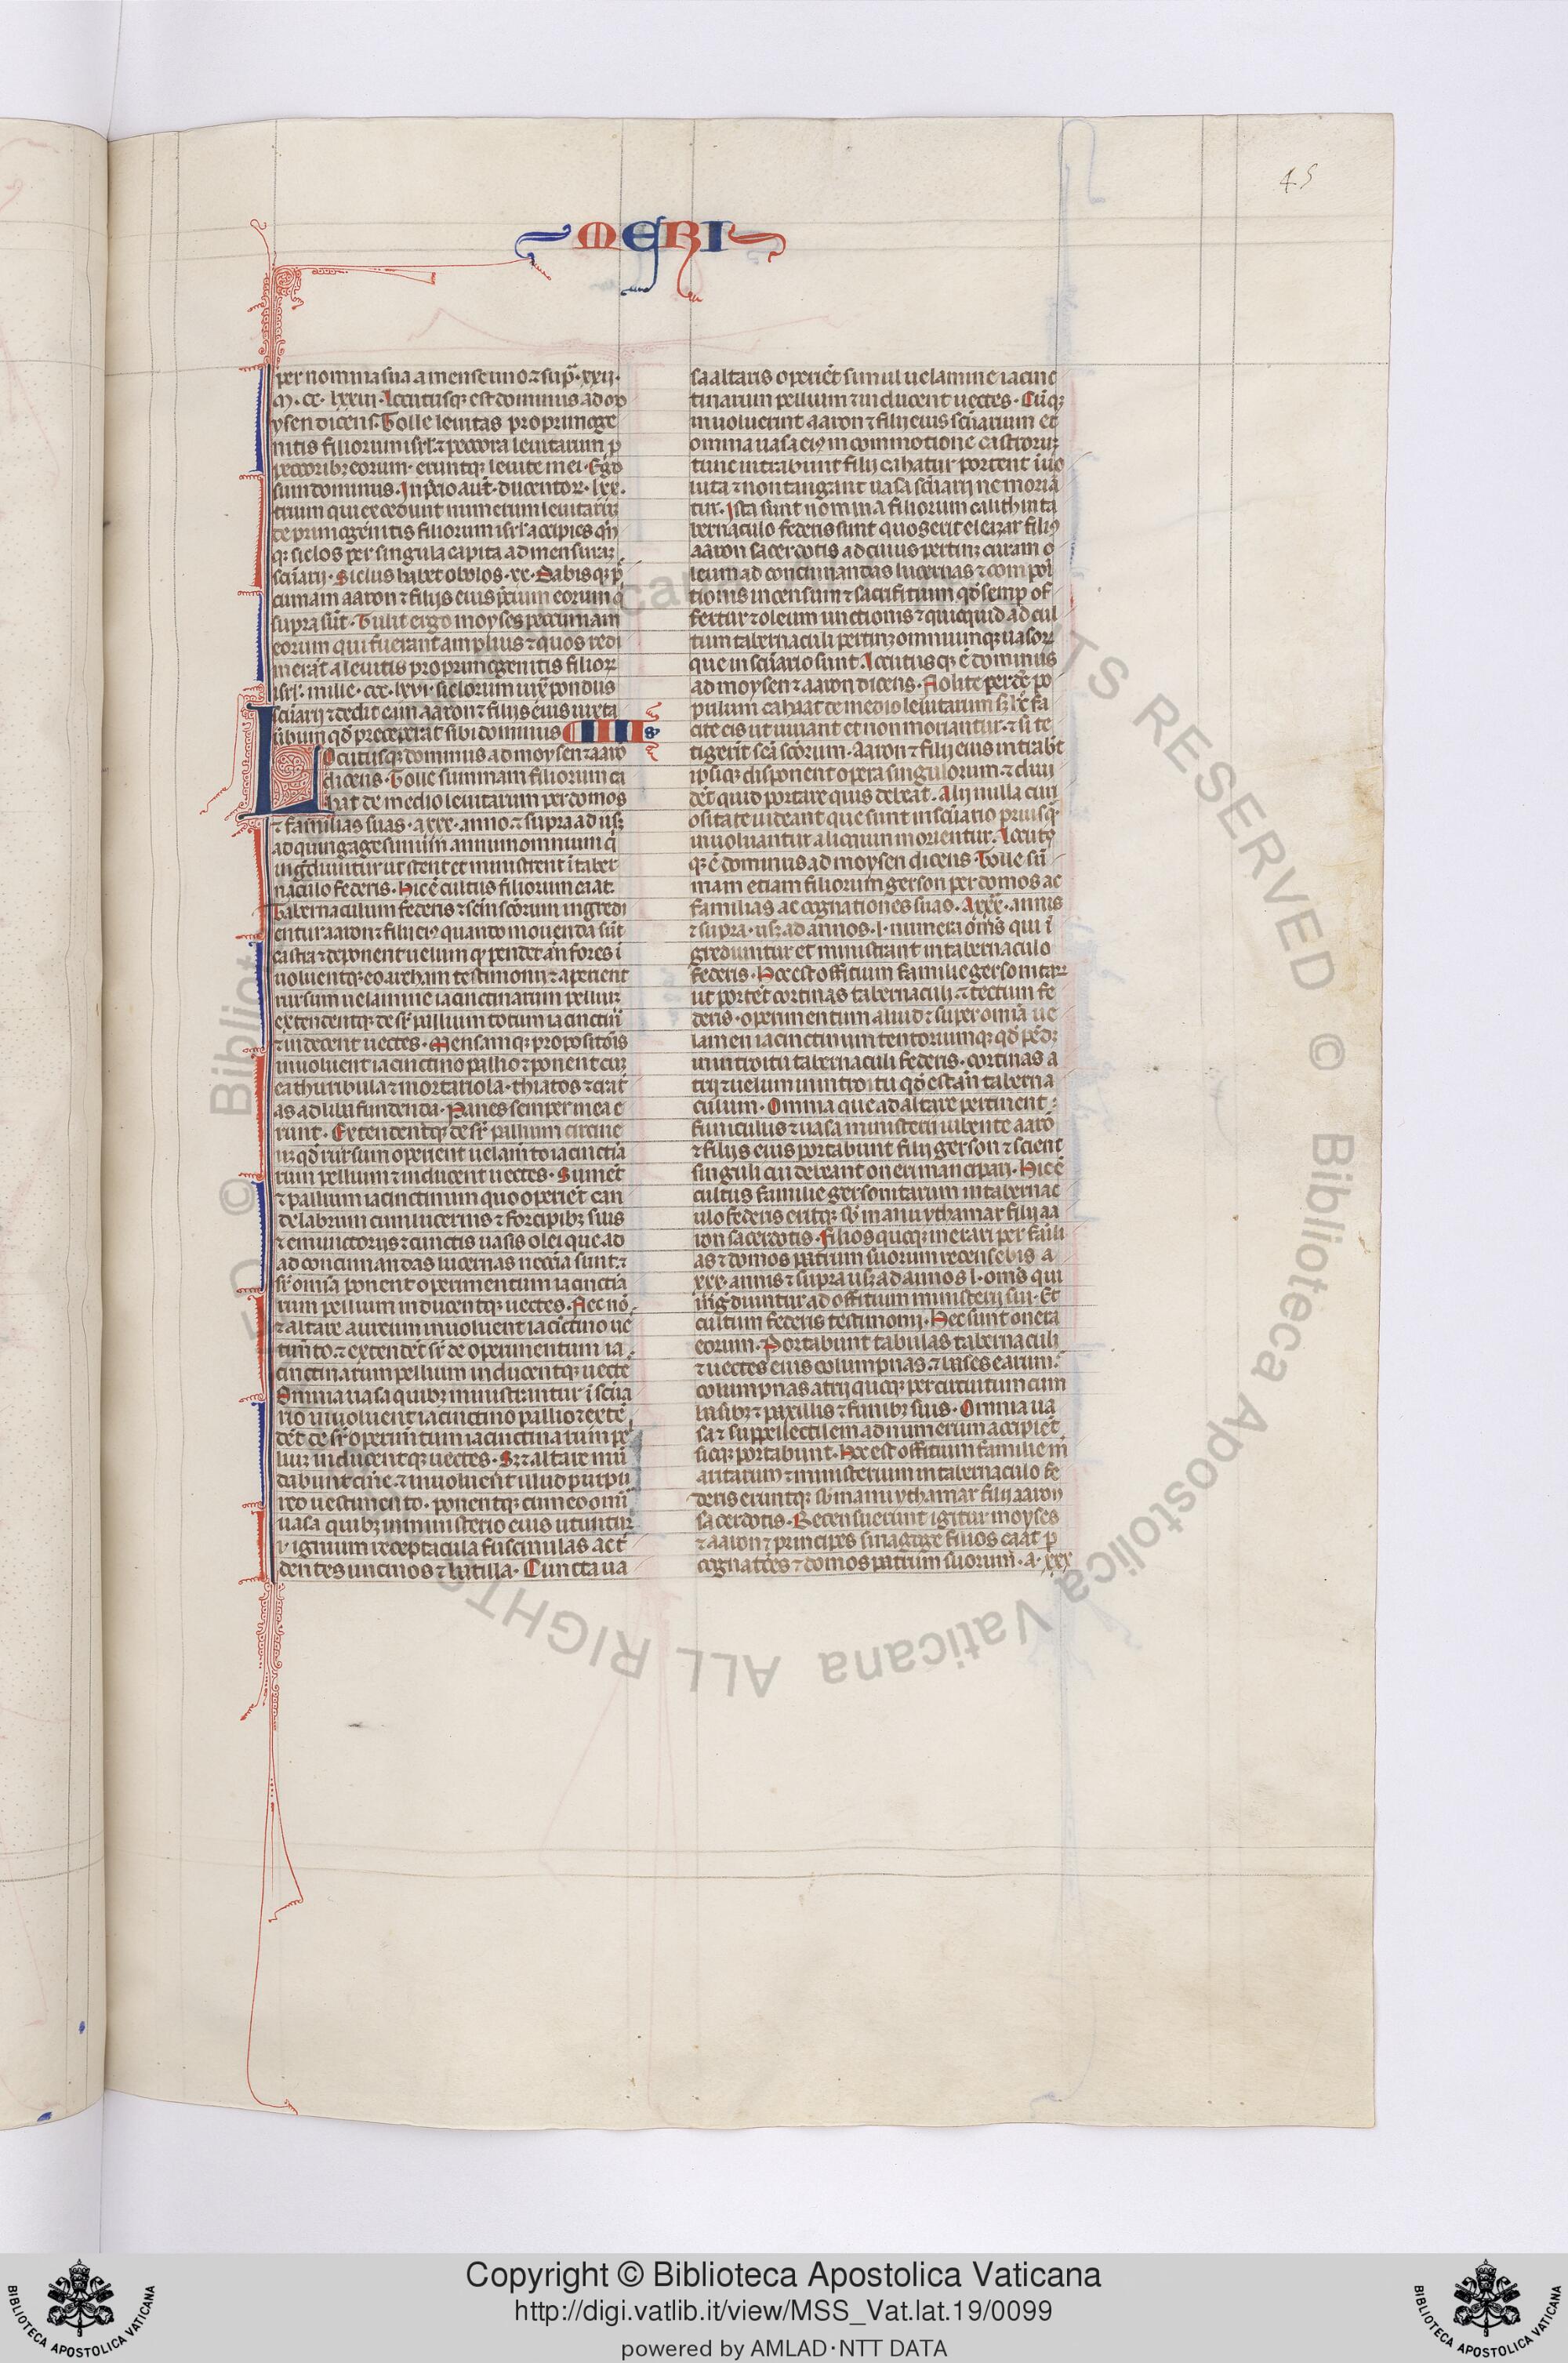 45
MERI
per nomina sua a mense uno ⁊ sup̄ · xxii ·
m̄ · cc · lxxiii · Locutusq; est dominus ad mo
ysen dicens. Tolle leuitas pro primoge
nitis filiorum isr̄l ⁊ peccora leuitarum p̄
peccorib; eorum · eruntq; leuite mei · Ego
sum dominus · In p̄cio aut̄ · ducentor̄ · lxx ·
trium qui excedunt numerum leuitarū
de primogenitis filiorum isr̄l accipies q̄n
q; siclos per singula capita ad mensurā
sc̄uarij · Siclus habet obolos · xx · Dabisq; p̄
cuniam aaron ⁊ filijs eius p̄cium eorum q̄
supra sūt · Tulit ergo moyses peccuniam
eorum qui fuerant amplius ⁊ quos redi
merāt a leuitis pro primogenitis filiorꝝ
isr̄l · mille · ccc · lxvi · siclorum iux̄ pondus
sc̄uarij ⁊ dedit eam aaron ⁊ filijs eius iuxta
ūbum qd̄ preceperat sibi dominus CIIII
Locutusq; dominus ad moysen ⁊ aarō
dicens · Tolle summam filiorum ca
hat de medio leuitarum per domos
⁊ familias suas · a xxx · anno ⁊ supra ad usq;
ad quingagesimum annum omnium q̄
inḡdiuntur ut stent et ministrent ī taber
naculo federis · Hic ē cultus filiorum caat ·
Tabernaculum federis ⁊ sc̄m sc̄orum ingredi
entur aaron ⁊ filij ei⁹ quando mouenda sūt
castra ⁊ deponent uelum q̄ pendet an̄ fores ī
uoluentq; eo archam testimonij ⁊ aperient
rursum uelamine iacinctinarum pelliuꝝ
extendentq; desr̄ pallium totum iacinctinū
⁊ inducent uectes · Mensamq; propositōis
inuoluent iacinctino pallio ⁊ ponent cuꝝ
ea thuribula ⁊ mortariola · chiatos ⁊ crat
as ad liba fundenda · Panes semper in ea e
runt · Extendentq; desr̄ pallium coccine
uꝝ qd̄ rursum operient uelamto iacinctia
rum pellium ⁊ inducent uectes · Sument
⁊ pallium iacinctinum quo operiēt can
delabrum cum lucernis ⁊ forcipib; suis
⁊ emunctorijs ⁊ cunctis uasis olei que ad
ad concinnandas lucernas necc̄ia sunt ⁊
sr̄ omīa ponent operimentum iacinctia
rum pellium inducentq; uectes · Nec nō
⁊ altare aureum inuoluent iacīctino ue
timto · ⁊ extendēt sr̄ de operimentum ia
cinctinarum pellium inducentq; uecte
Omnia uasa quib; ministrantur ī sc̄ua
rio inuoluent iacinctino pallio ⁊ extē
dēt de sr̄ operimtum iacinctinarum pe
liuꝝ inducentq; uectes · Sꝫ ⁊ altare mū
dabunt cīne · ⁊ inuoluent illud purpu
reo uestimento · ponentq; cum eo omī
uasa quib; in ministerio eius utuntur
i · ignium receptacula fuscinulas ac t
dentes uncinos ⁊ batilla · Cuncta ua
sa altaris operiēt simul uelamine iacinc
tinarum pellium ⁊ inducent uectes · Cūq;
inuoluerint aaron ⁊ filij eius sc̄uarium et
omnia uasa ei⁹ in commotione castroruꝝ
tunc intrabunt filij cahat ut portent īuo
luta ⁊ non tangant uasa sc̄uarij ne moriā
tur · Ista sunt nomina filiorum caath in ta
bernaculo federis sunt quos erit eleazar fili⁹
aaron sacerdotis ad cuius pertinꝫ curam o
leum ad concinnandas lucernas ⁊ compoī
tionis incensum ⁊ sacrifitium qd̄ semp of
fertur ⁊ oleum unctionis ⁊ quicquid ad cul
tum tabernaculi pertinꝫ omniumq; uasorꝝ
que in sc̄uario sunt · Locutusq; ē dominus
ad moysen ⁊ aaron dicens · Nolite perdē po
pulum cahaat de medio leuitarum sꝫ h̄ fa
cite eis ut uiuant et non moriantur · ⁊ si te
tigerīt sc̄a sc̄orum · Aaron ⁊ filij eius intrabt̄
ipsiq; disponent opera singulorum · ⁊ diui
dēt quid portare quis debeat · Alij nulla curi
ositate uideant que sunt in sc̄uario priusq̄
inuoluantur alioquin morientur · Locut⁹
q; ē dominus ad moysen dicens · Tolle sū
mam etiam filiorum gerson per domos ac
familias ac cognationes suas · A xxx · annis
⁊ supra · usq; ad annos · l · numera om̄s qui ī
grediuntur et ministrant in tabernaculo
federis · Hoc est offitium familie gersonitarꝝ
ut portēt cortinas tabernaculi · ⁊ tectum fe
deris · operimentum aliud ⁊ super omīa ue
lamen iacinctinum tentoriumq; qd̄ pēdꝫ
in introitu tabernaculi federis · cortinas a
trij ⁊ uelum in introitu qd̄ est an̄ taberna
culum · Omnia que ad altare pertinent ·
funiculus ⁊ uasa ministerij iubente aarō
⁊ filijs eius portabunt filij gerson ⁊ scient
singuli cui debeant oneri mancipari · Hic ē
cultus familie gersonitarum in tabernac
ulo federis eritq; sb̄ manu ythamar filij aa
ron sacerdotis · Filios quoq; merari per famili
as ⁊ domos patrum suorum recensebis · a
xxx · annis ⁊ supra usq; ad annos l · om̄s qui
inḡdiuntur ad offitium ministerij sui · Et
cultum federis testimonij · Hec sunt onera
eorum · Portabunt tabulas tabernaculi
⁊ uectes eius columpnas · ⁊ bases earum ·
columpnas atrij quoq; per circuitum cum
basib; ⁊ paxillis ⁊ funib; suis · Omnia ua
sa ⁊ suppellectilem ad numerum accipiēt
sicq; portabunt · Hoc est offitium familie m̄
aritarum ⁊ ministerium in tabernaculo fe
deris eruntq; sb̄ manu ythamar filij aaron
sacerdotis · Recensuerunt igitur moyses
⁊ aaron ⁊ principes sinagoge filios caat p̄
cognatōes ⁊ domos patrum suorum · a · xxx
Copyright © Biblioteca Apostolica Vaticana
http://digi.vatlib.it/view/MSS_Vat.lat.19/0099
powered by AMLAD·NTT DATA
BIBLIOTECA APOSTOLICA VATICANA
BIBLIOTECA APOSTOLICA VATICANA